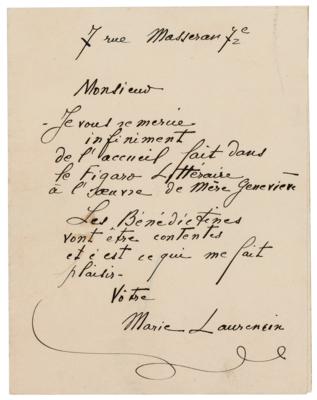 7 rue Masseran 7e
Monsieur
- Je vous remercie
infiniment
de l'accueil fait dans
le Figaro Littéraire
à l'œuvre de Mère Geneviève
Les Bénédictines
vont être contentes
et c'est ce qui me fait
plaisir -
Vôtre
Marie Laurencin